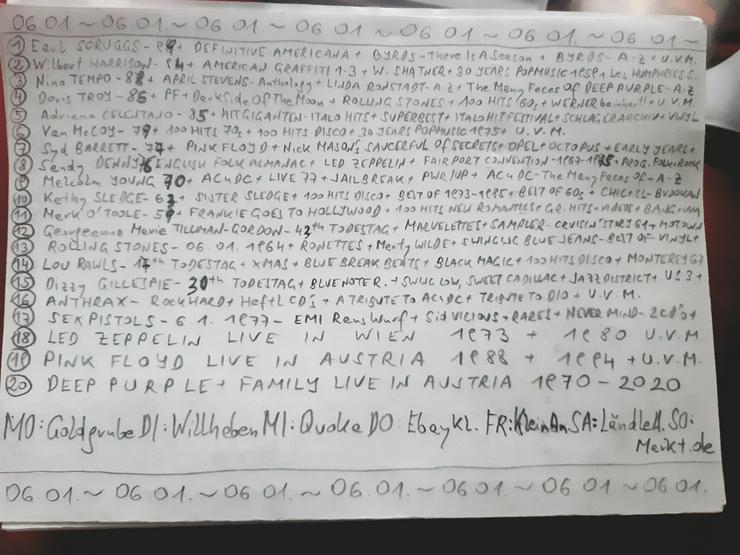 06.01 ~ 06.01. ~ 06.01. ~ 06 01. ~ 06 01. ~ 06 01. ~ 06 01 ~
① Earl SCRUGGS - + DEFINITIVE AMERICANA + BYRDS - There Is A Season + BYRDS - A-Z + U.V.M.
② Wilbert HARRISON - + AMERICAN GRAFFITI 1-3 + W. SHATNER + 30 YEARS POPMUSIC 1959 + Les HUMPHRIES S.
③ Nino TEMPO - 88 + APRIL STEVENS - Anthology + LINDA RONSTADT - A-Z + The Many Faces Of DEEP PURPLE - A-Z
④ Doris TROY - 86 + PF + Dark Side Of The Moon + ROLLING STONES + 100 HITS 60s + WERNER beinhart! + U.V.M.
⑤ Adriano CELENTANO - 85 + HITGIGANTEN - ITALO HITS + SUPERBEST + ITALO HIT FESTIVAL + SCHLAGERARCHIV + VINYL
⑥ Van McCOY - 79 + 100 HITS 70s + 100 HITS DISCO + 30 YEARS POPMUSIC 1975 + U.V.M.
⑦ Syd BARRETT - 77 + PINK FLOYD + NICK MASON'S SAUCERFUL OF SECRETS + OPEL + OCTOPUS + EARLY YEARS +
⑧ Sandy DENNY 76 ENGLISH FOLK ALMANAC + LED ZEPPELIN + FAIRPORT CONVENTION - 1967-1985 + PROG. FOLK + ROCK
⑨ Malcolm YOUNG 70 + AC↯DC + LIVE 77 + JAILBREAK + PWR/UP + AC↯DC - The Many Faces Of - A-Z
⑩ Kathy SLEDGE - 63 + SISTER SLEDGE + 100 HITS DISCO + BEST OF 1973-1985 + BEST OF 60s + CHIC + SL - BUDOKAN
⑪ Mark O'TOOLE - 59 + FRANKIE GOES TO HOLLYWOOD + 100 HITS NEW ROMANTICS + GR. HITS + VIDEOS + BANG +
⑫ Georgeanna Marie TILLMAN-GORDON - 43th TODESTAG + MARVELETTES + SAMPLER - CRUISIN' STORY 61 + MOTOWN
⑬ ROLLING STONES - 06. 01. 1964 + RONETTES + Marty WILDE + SWINGING BLUE JEANS - BEST OF - VINYL +
⑭ LOU RAWLS - 17th TODESTAG + XMAS + BLUE BREAK BEATS + BLACK MAGIC + 100 HITS DISCO + MONTEREY 67
⑮ Dizzy GILLESPIE - 30th TODESTAG + BLUE NOTE R. + SWING LOW, SWEET CADILLAC + JAZZ DISTRICT + US 3 +
⑯ ANTHRAX - ROCK HARD + Heft + CD's + A TRIBUTE TO AC↯DC + TRIBUTE TO DIO + U.V.M.
⑰ SEX PISTOLS - 6. 1. 1977 - EMI Rauswurf + Sid VICIOUS + RARES + NEVER MIND - 2CD's +
⑱ LED ZEPPELIN LIVE IN WIEN 1973 + 1980 U.V.M.
⑲ PINK FLOYD LIVE IN AUSTRIA 1988 + 1994 + U.V.M.
⑳ DEEP PURPLE + FAMILY LIVE IN AUSTRIA 1970 - 2020
MO: Goldgrube DI: Willhaben MI: Quoka DO: Ebay Kl. FR: KleinAn SA: LändleA. SO:
Markt.de
06 01. ~ 06 01. ~ 06 01. ~ 06 01. ~ 06 01. ~ 06 01 ~ 06 01.